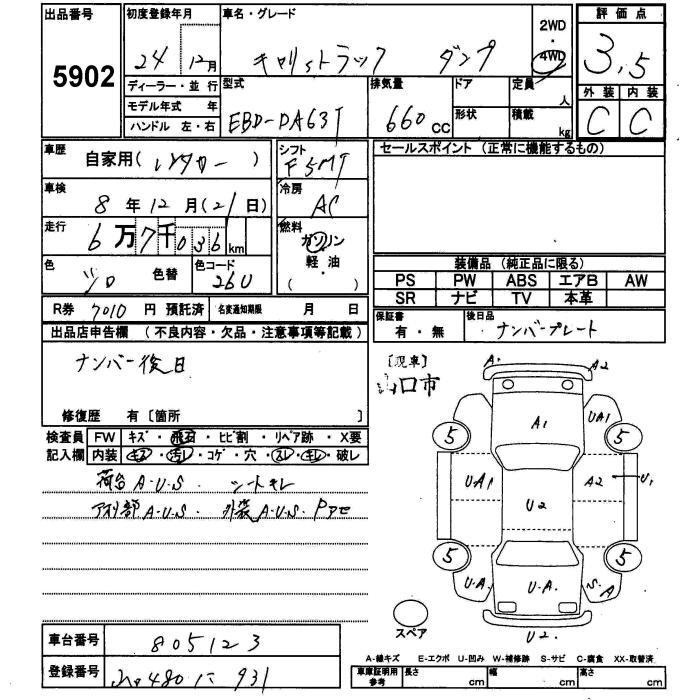 出品番号 初度登録年月 車名・グレード 2WD 評価点
5902 24 12月 キャリィトラック ダンプ ・ 4WD 3.5
ディーラー・並行 型式 排気量 ドア 定員 人 外装 内装
モデル年式 年 形状 積載 kg
ハンドル 左・右 EBD-DA63T 660 CC C C
車歴 自家用(レンタカー) シフト F5MT セールスポイント (正常に機能するもの)
車検 8年12月(21日) 冷房 AC
走行 6万7千036km 燃料 ガソリン
軽・油
( )
色 シロ 色替 色コード 26U 装備品 (純正品に限る)
PS PW ABS エアB AW
SR ナビ TV 本革
R券 7010 円 預託済 名変通知期限 月 日 保証書 有・無 後日品 ナンバープレート
出品店申告欄 (不良内容・欠品・注意事項等記載)
ナンバー後日 [現車]
山口市
修復歴 有 [箇所 ]
検査員 FW キズ・飛石・ヒビ割・リペア跡・X要
記入欄 内装 キズ・汚レ・コゲ・穴・スレ・キレ・破レ
荷台A・U・S. シートキレ
下廻部A・U・S 外装A・U・S. Pアセ
A. A2
A1 UA1
5 5
UA1 A2 U1
U2
5 5
U.A. U.A. S.A
U2.
スペア
車台番号 805123
A-線キズ E-エクボ U-凹み W-補修跡 S-サビ C-腐食 XX-取替済
登録番号 480 931
車庫証明用参考 長さ cm 幅 cm 高さ cm